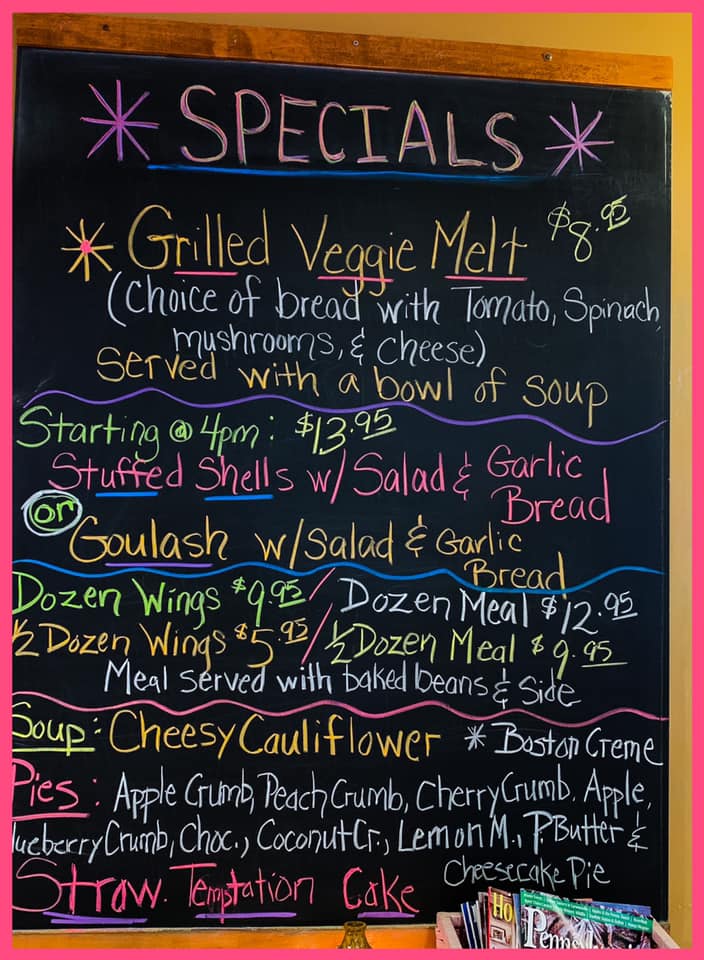 * SPECIALS *
* Grilled Veggie Melt $8.95
(Choice of bread with Tomato, Spinach,
mushrooms, & Cheese)
Served with a bowl of soup
Starting @ 4pm: $13.95
Stuffed Shells w/ Salad & Garlic
Bread
or
Goulash w/ Salad & Garlic
Bread
Dozen Wings $9.95 / Dozen Meal $12.95
1/2 Dozen Wings $5.95 / 1/2 Dozen Meal $9.95
Meal served with baked beans & Side
Soup: Cheesy Cauliflower * Boston Creme
Pies: Apple Crumb, Peach Crumb, Cherry Crumb, Apple,
lueberry Crumb, Choc., Coconut Cr., Lemon M., P. Butter &
Cheesecake Pie
Straw. Temptation Cake
Ho
Penns